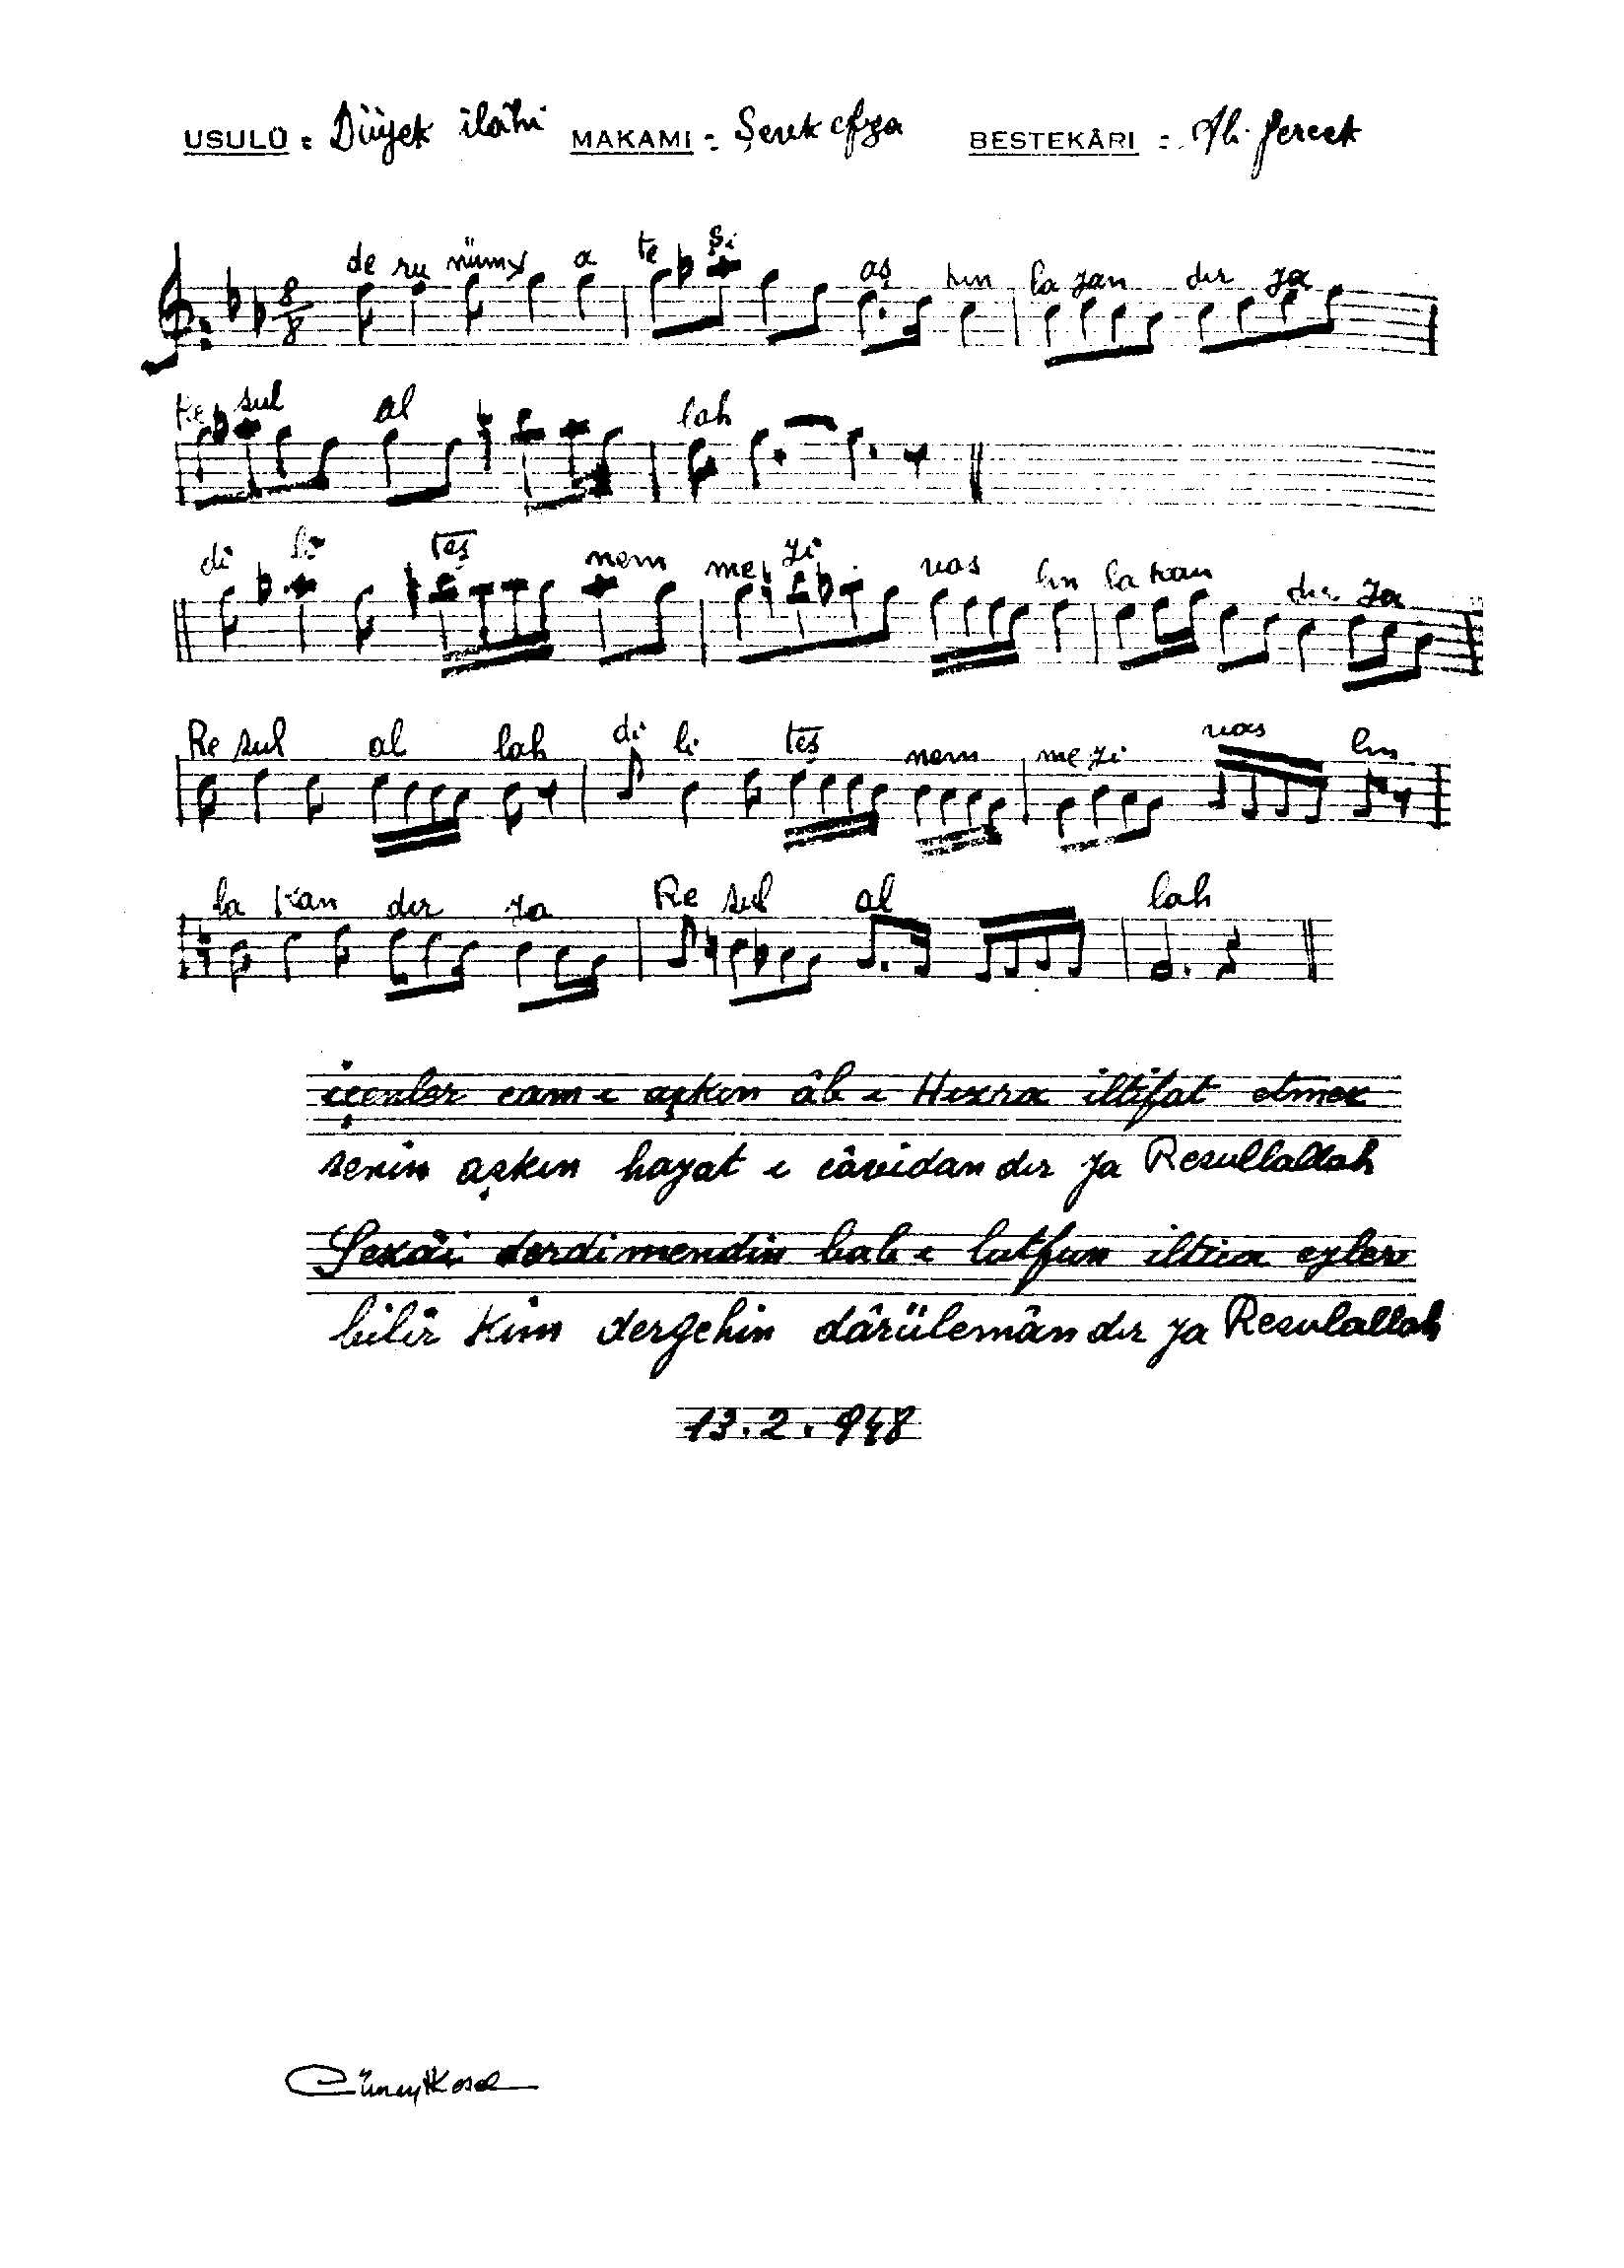 USULÜ : Düyek ilâhi MAKAMI : Şevk efza BESTEKÂRI : Ali
de ru nümy a te şi aş kın la yan dır ya
Re sul al lah
di li teş nem me yi vas lın la kan dır ya
Re sul al lah di li teş nem me yi vas lın
la kan dır ya Re sul al lah
içenler cam ı aşkın âb ı Hızra iltifat etmez
senin aşkın hayat ı câvidan dır ya Resullallah
Sezâi derdimendin bab ı lutfun iltica eyler
bilir kim dergehin dârülemân dır ya Resulallah
13.2.948
Cüneyt Kosal